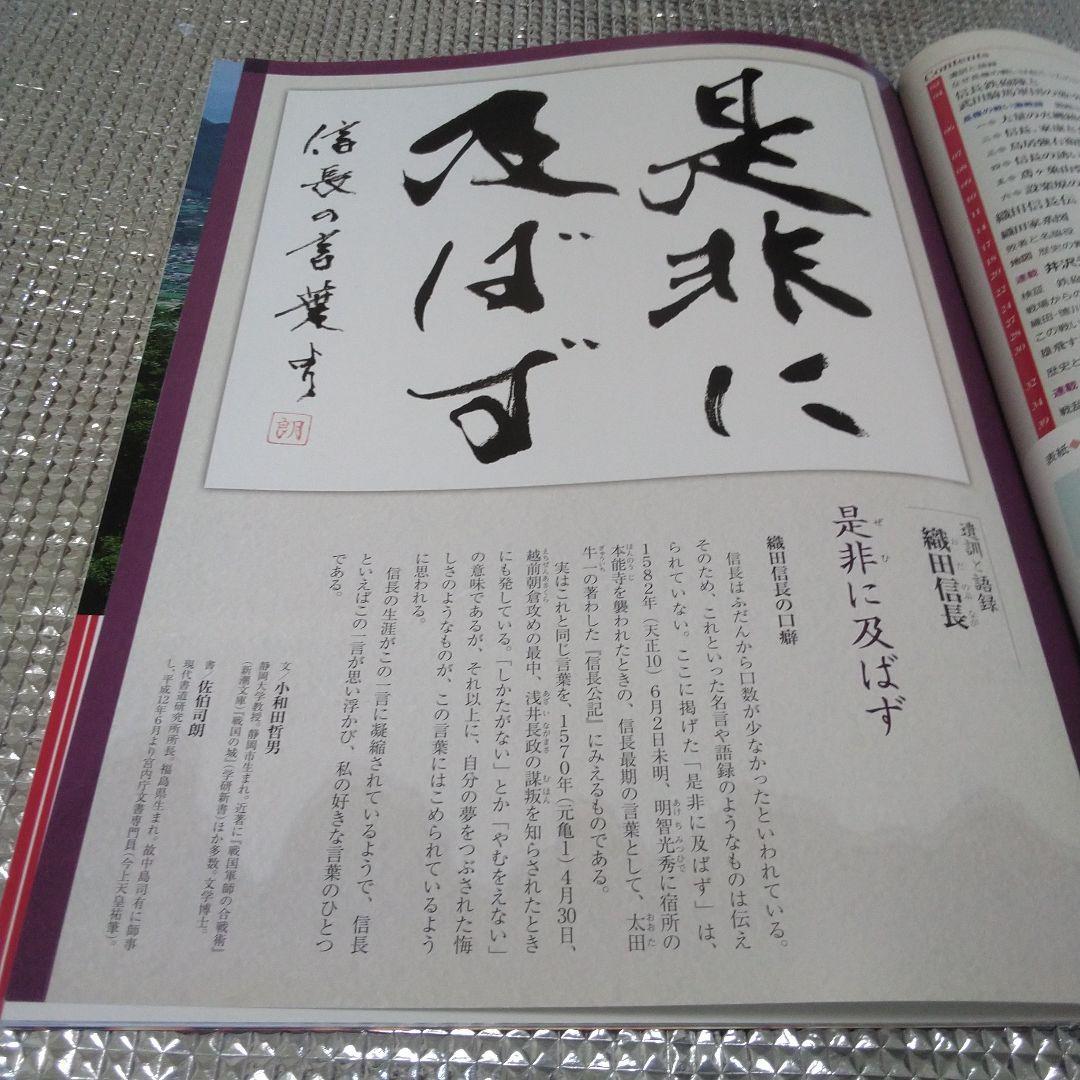 是非に
及ばず
信長の言葉より
朗
遺訓と語録
織田信長
おだのぶなが
是非に及ばず
ぜひ
織田信長の口癖
信長はふだんから口数が少なかったといわれている。
そのため、これといった名言や語録のようなものは伝え
られていない。ここに掲げた「是非に及ばず」は、
1582年(天正10)6月2日未明、明智光秀に宿所の
本能寺を襲われたときの、信長最期の言葉として、太田
牛一の著わした『信長公記』にみえるものである。
実はこれと同じ言葉を、1570年(元亀1)4月30日、
越前朝倉攻めの最中、浅井長政の謀叛を知らされたとき
にも発している。「しかたがない」とか「やむをえない」
の意味であるが、それ以上に、自分の夢をつぶされた悔
しさのようなものが、この言葉にはこめられているよう
に思われる。
信長の生涯がこの一言に凝縮されているようで、信長
といえばこの一言が思い浮かび、私の好きな言葉のひとつ
である。
文/小和田哲男
静岡大学教授。静岡市生まれ。近著に『戦国軍師の合戦術』
(新潮文庫)『戦国の城』(学研新書)ほか多数。文学博士。
書 佐伯司朗
現代書道研究所所長。福島県生まれ。故中島司有に師事
し、平成12年6月より宮内庁文書専門員(今上天皇祐筆)。
Contents
遺訓と語録
信長鉄砲隊と
武田騎馬軍団の
織田信長伝
織田家系図
敗者と名脇役
地図 歴史の
連載 井沢
検証 鉄
戦場からの
織田・徳川
この戦い
雄飛す
歴史と
連載
戦乱
表紙